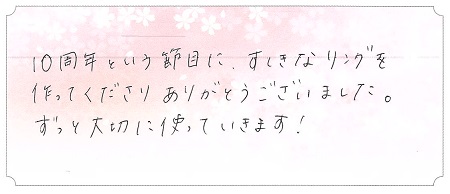 10周年という節目に、すてきなリングを
作ってくださりありがとうございました。
ずっと大切に使っていきます!